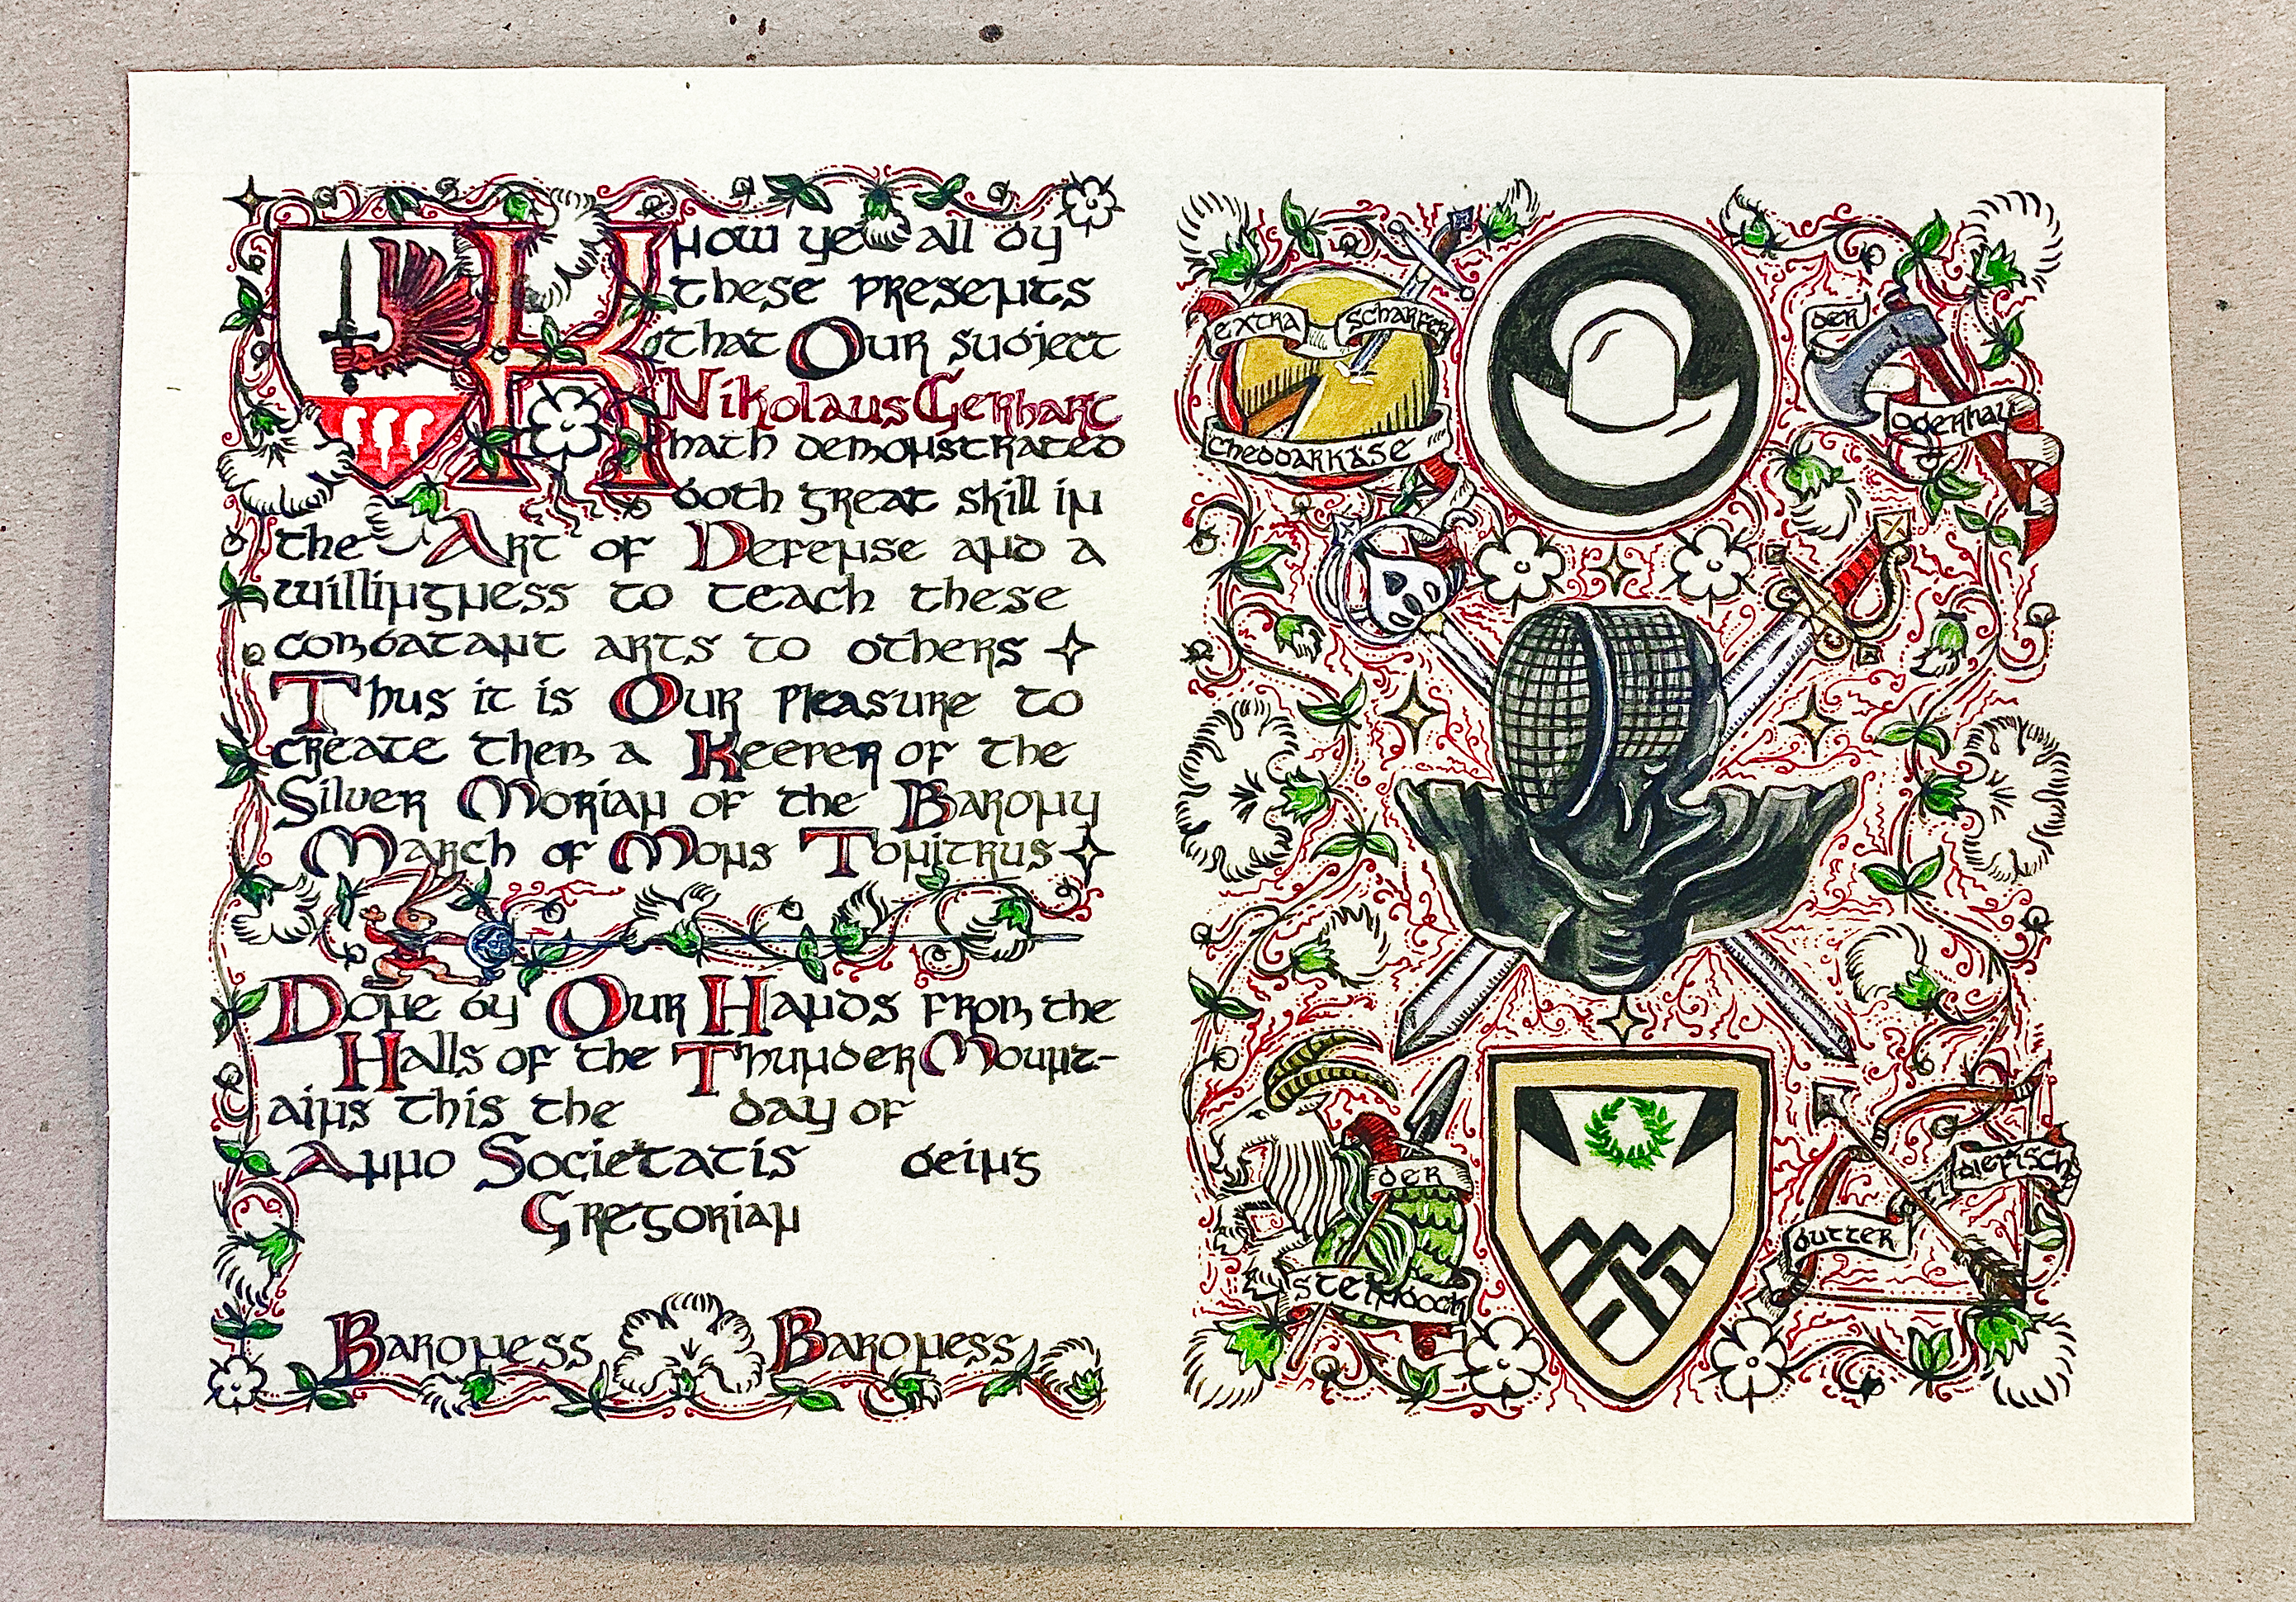 Know ye all by
these presents
that Our subject
Nikolaus Gerhart
hath demonstrated
both great skill in
the Art of Defense and a
willingness to teach these
combatant arts to others
Thus it is Our pleasure to
create them a Keeper of the
Silver Morian of the Barony
March of Mons Tonitrus
Done by Our Hands from the
Halls of the Thunder Mount-
ains this the day of
Anno Societatis being
Gregorian
Baroness Baroness
extra scharfer
cheddarkäse
der
oderhau
der
steinbock
diefisch
butter